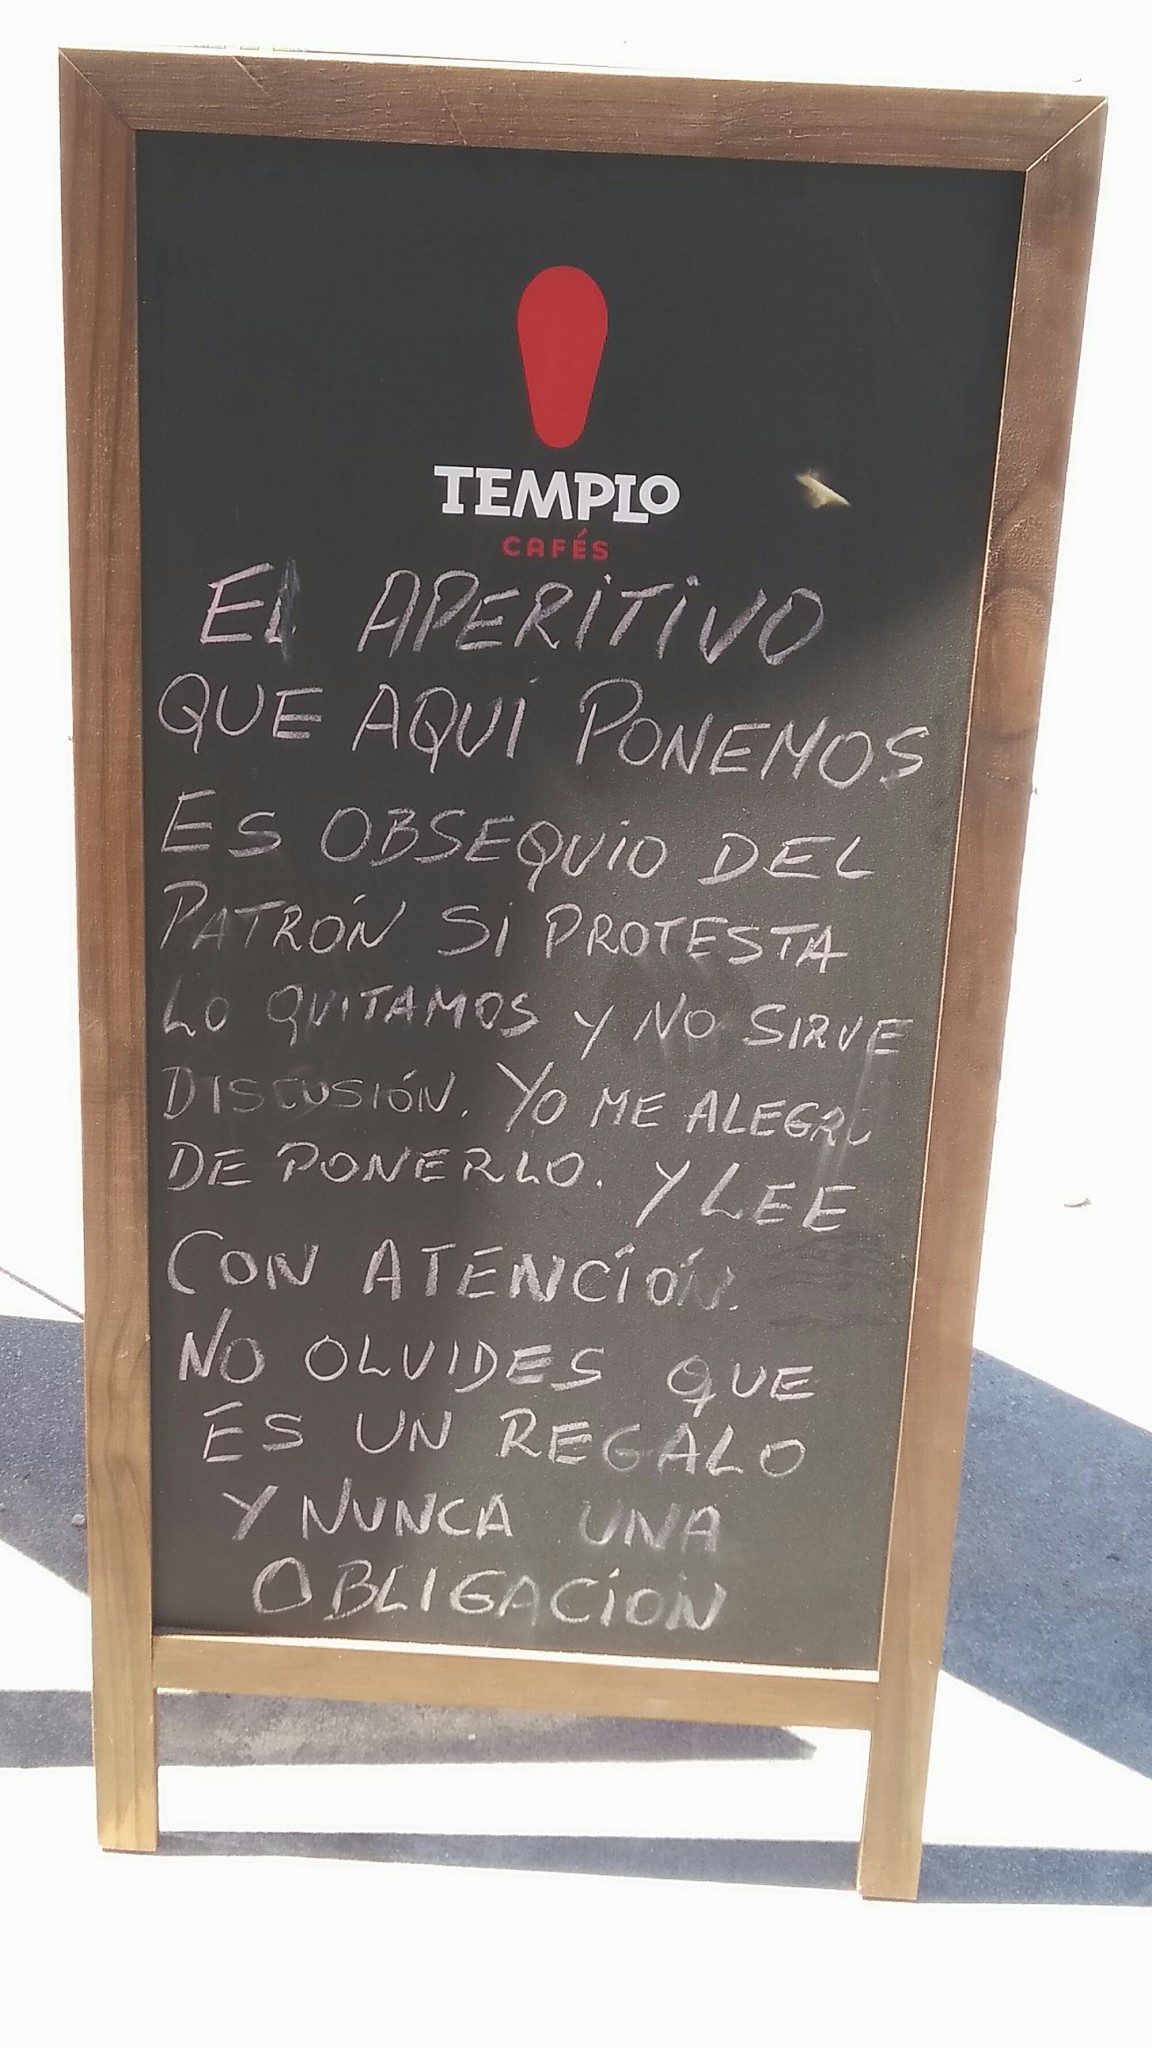 TEMPLO
CAFÉS
El APERiTiVO
QUE AQUÍ PONEMOS
ES OBSEQUiO DEL
PATRÓN Si PROTESTA
LO QUiTAMOS Y NO SIRVE
DISCUSIÓN. YO ME ALEGRO
DE PONERLO. Y LEE
CON ATENCíÓN.
NO OLVIDES QUE
ES UN REGALO
Y NUNCA UNA
OBLIGACíÓN